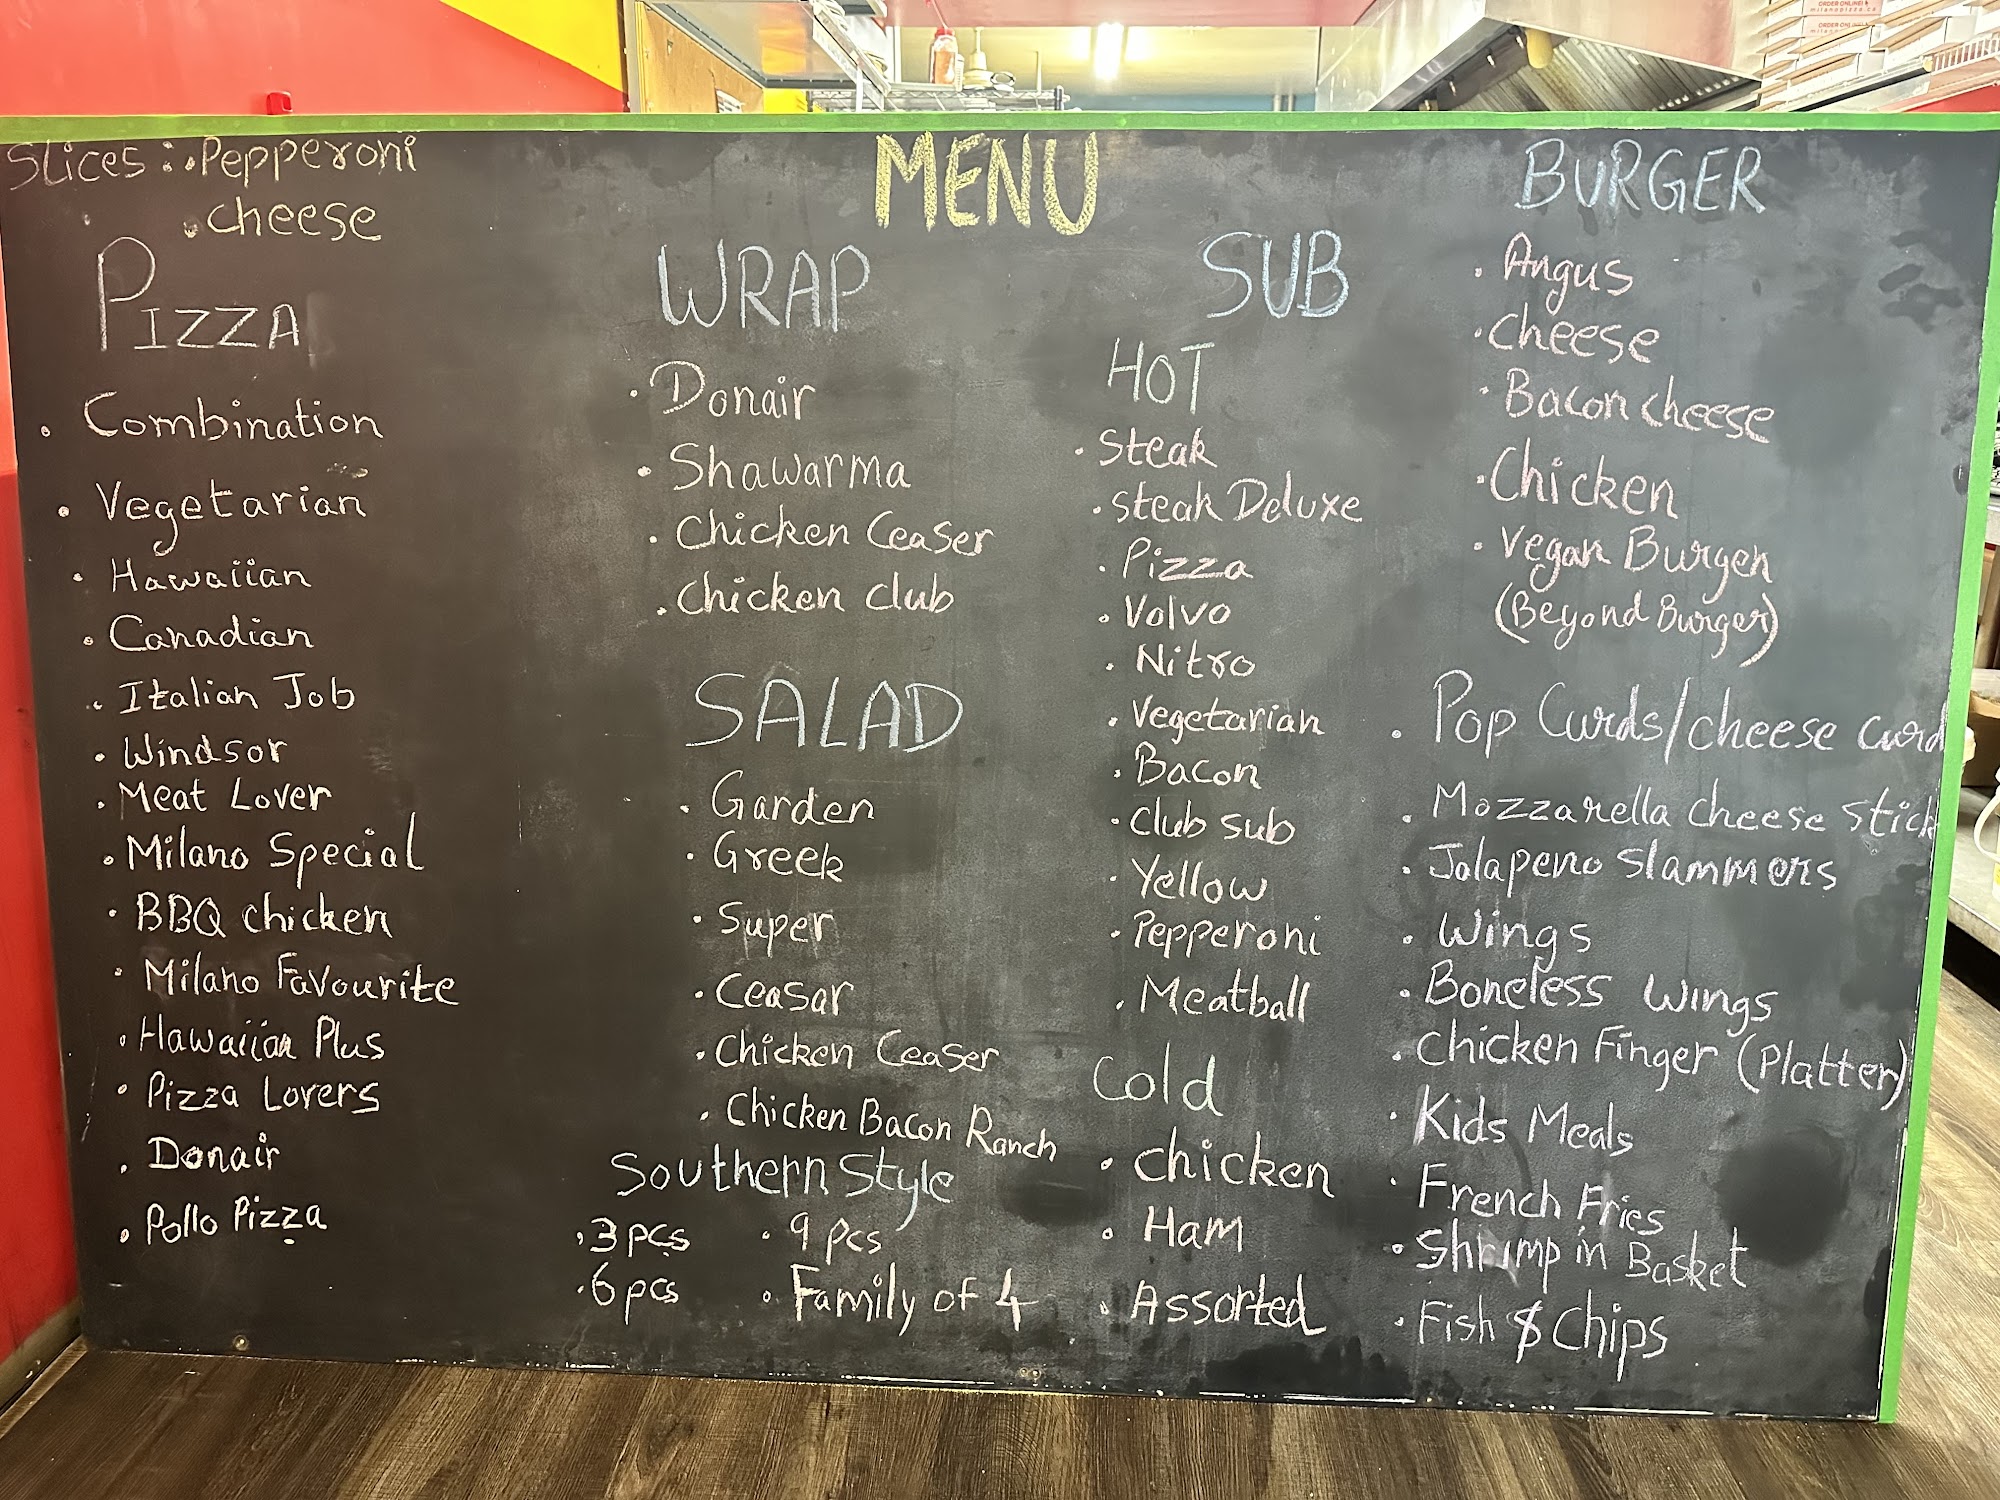 MENU
Slices: .Pepperoni
.cheese
PIZZA
. Combination
. Vegetarian
. Hawaiian
. Canadian
. Italian Job
. Windsor
. Meat Lover
. Milano Special
. BBQ chicken
. Milano Favourite
. Hawaiian Plus
. Pizza Lovers
. Donair
. Pollo Pizza
WRAP
. Donair
. Shawarma
. Chicken Ceaser
. Chicken club
SALAD
. Garden
. Greek
. Super
. Ceasar
. Chicken Ceaser
. Chicken Bacon Ranch
Southern Style
. 3 pcs . 9 pcs
. 6 pcs . Family of 4
SUB
HOT
. Steak
. Steak Deluxe
. Pizza
. Volvo
. Nitro
. Vegetarian
. Bacon
. Club sub
. Yellow
. Pepperoni
. Meatball
Cold
. Chicken
. Ham
. Assorted
BURGER
. Angus
. Cheese
. Bacon cheese
. Chicken
. Vegan Burger
(Beyond Burger)
. Pop Curds/cheese curd
. Mozzarella cheese stick
. Jalapeno Slammers
. Wings
. Boneless Wings
. Chicken Finger (Platter)
. Kids Meals
. French Fries
. Shrimp in Basket
. Fish $ Chips
ORDER ONLINE!
milanopizza.ca
ORDER ONLINE!